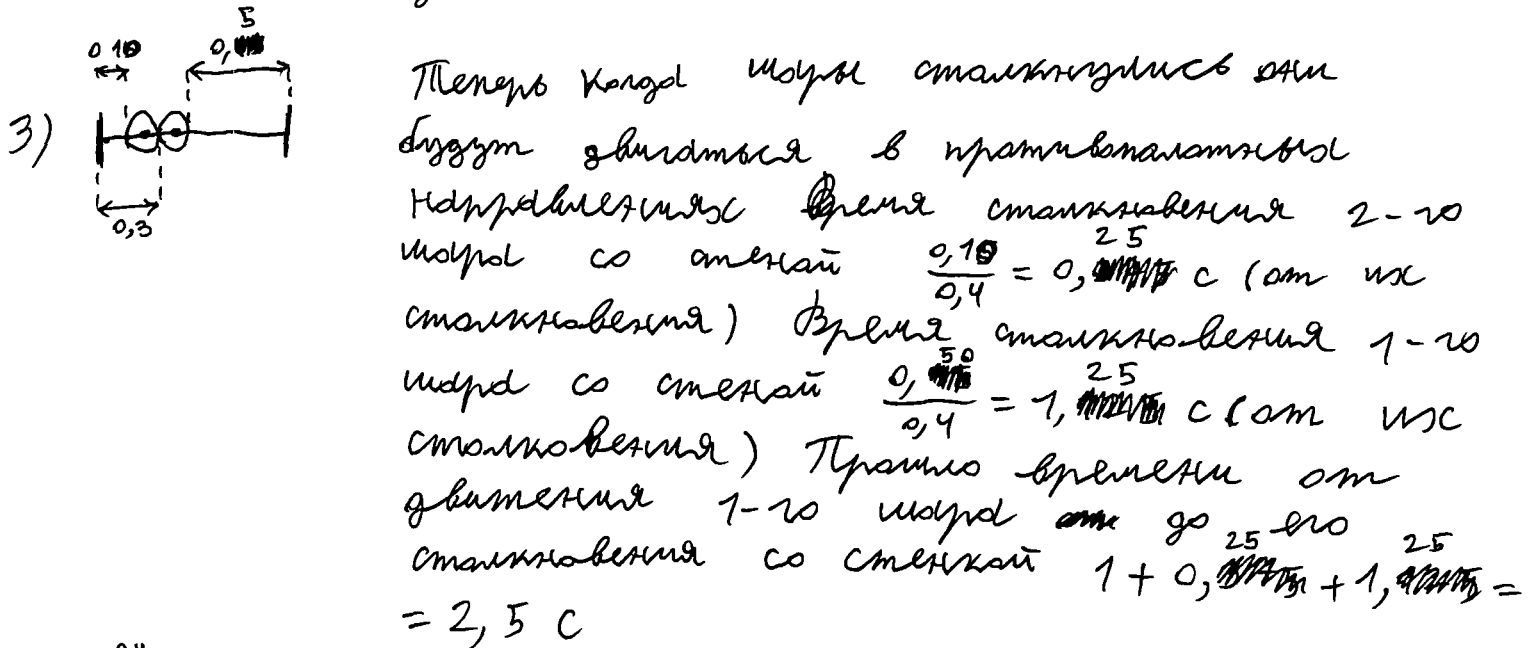 5
0 10 0,
3)
0,3
Теперь когда шары столкнулись они
будут двигаться в противоположных
направлениях Время столкновения 2-го
шара со стеной 0,10/0,4 = 0,25 с (от их
столкновения) Время столкновения 1-го
шара со стеной 0,50/0,4 = 1,25 с (от их
столковения) Прошло времени от
движения 1-го шара до его
столкновения со стенкой 1 + 0,25 + 1,25 =
= 2,5 с